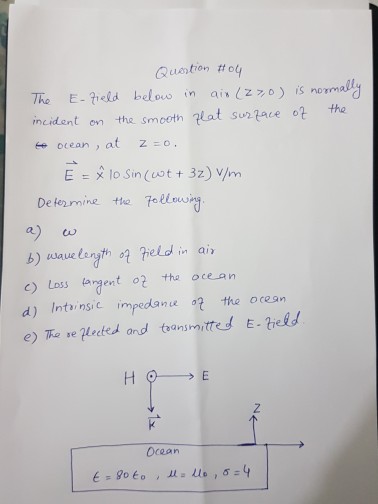 Question #04
The E-field below in air (z ≥ 0) is normally
incident on the smooth flat surface of the
ocean, at z = 0.
E = x̂ 10 Sin(ωt + 3z) V/m
Determine the following.
a) ω
b) wavelength of field in air
c) Loss tangent of the ocean
d) Intrinsic impedance of the ocean
e) The reflected and transmitted E-field.
H E
k
Z
Ocean
ε = 80 ε₀, μ = μ₀, σ = 4